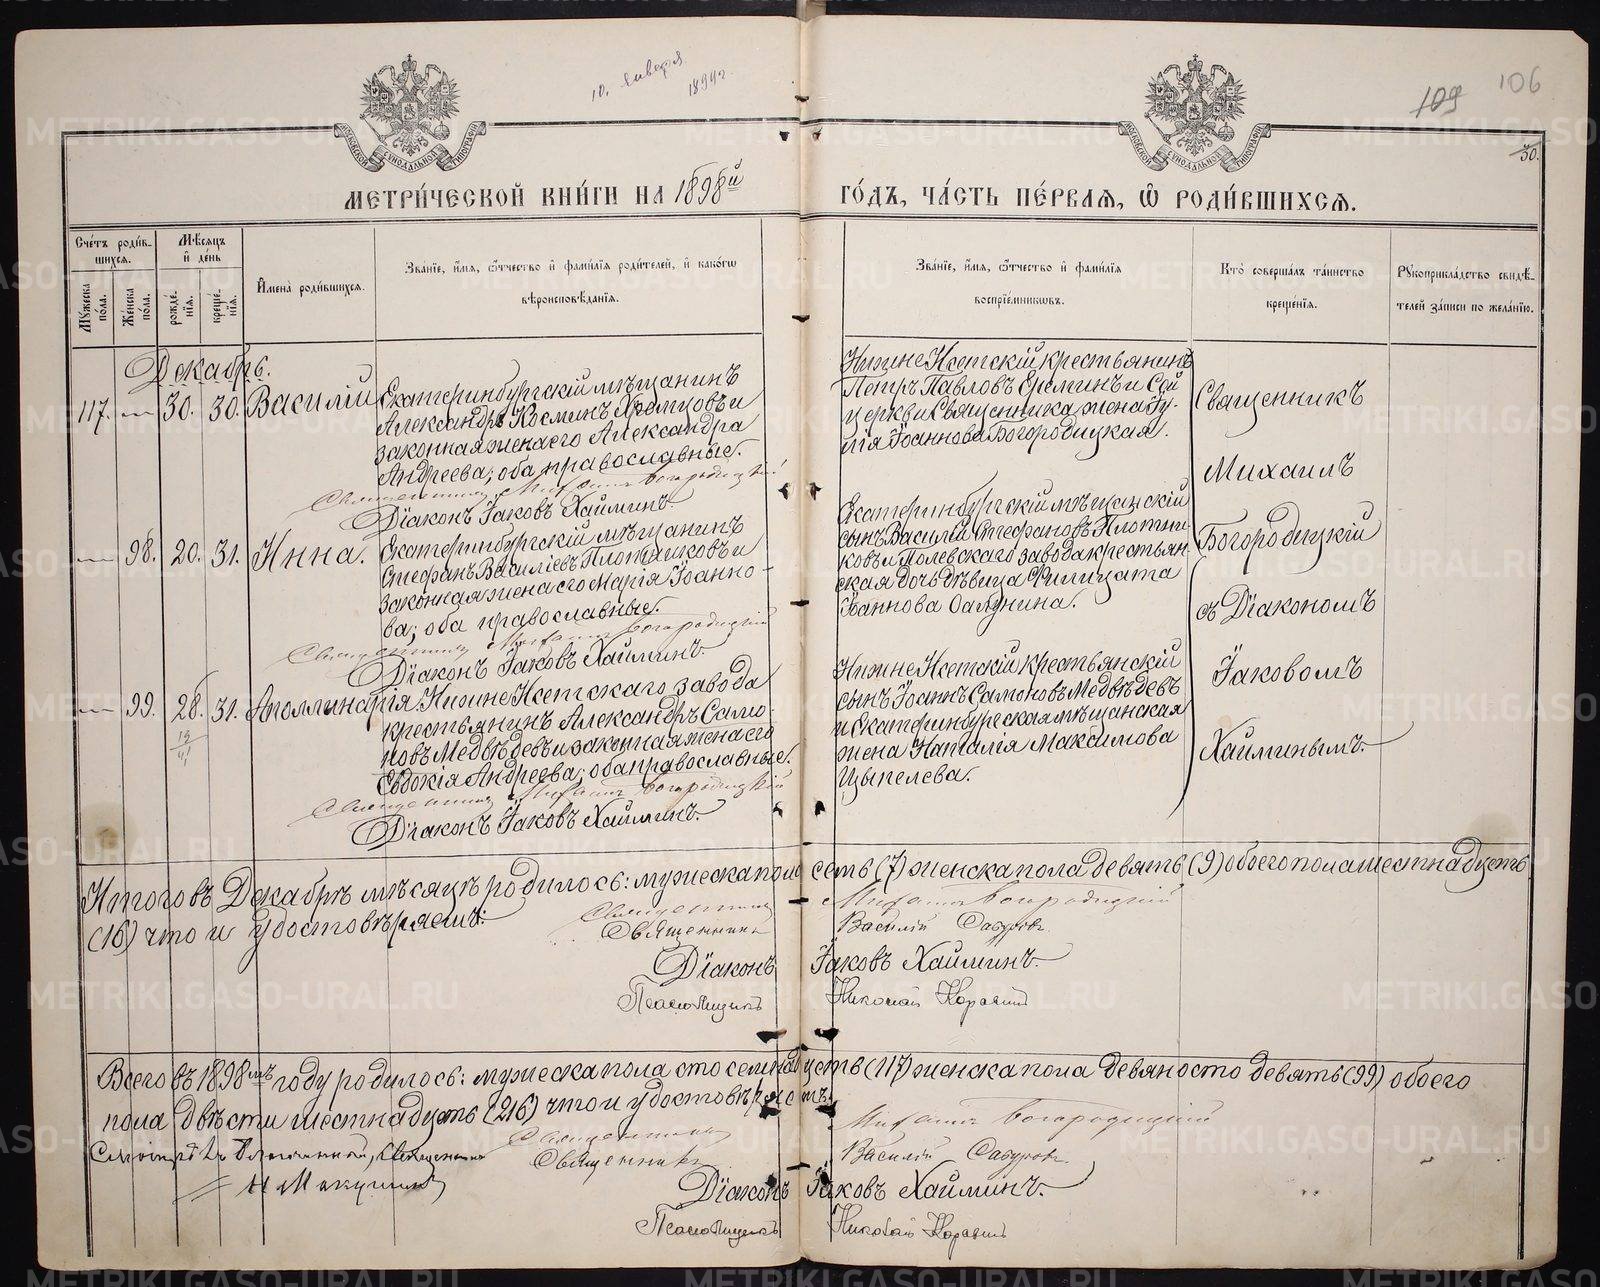 10. января
1899 г.
109 106
30.
МЕТРИ́ЧЕСКОЙ КНИ́ГИ НА 1898й ГО́ДЪ, ЧА́СТЬ ПЕ́РВАѦ, Ѽ РОДИ́ВШИХСѦ.
Сче́тъ роди́в-
шихсѧ.
Мѣ́сѧцъ
и҆ де́нь
Мꙋ́жеска по́ла.
Же́нска по́ла.
рожде́-
нїѧ.
креще́-
нїѧ.
И҆мена̀ роди́вшихсѧ.
Зва́нїе, и҆́мѧ, ѻ҆́тчество и҆ фами́лїѧ роди́телей, и҆ како́гѡ
вѣроисповѣ́данїѧ.
Зва́нїе, и҆́мѧ, ѻ҆́тчество и҆ фами́лїѧ
воспрїе́мникѡвъ.
Кто̀ соверша́лъ та́инство
креще́нїѧ.
Рꙋкоприкла́дство свидѣ́-
телей за́писи по жела́нїю.
Декабрь.
117. — 30. 30. Василій
Екатеринбургскій мѣщанинъ
Александръ Косминъ Хромцовъ и
законная жена его Александра
Андреева; оба православные.
Священникъ Михаилъ Богородицкій
Діаконъ Іаковъ Хайминъ.
Нижне Исетскій крестьянинъ
Петръ Павловъ Ереминъ и сей
церкви Священника жена Ю-
лія Іоаннова Богородицкая.
Священникъ
Михаилъ
Богородицкій
съ Діакономъ
Іаковомъ
Хайминымъ.
— 98. 20. 31. Инна.
Екатеринбургскій мѣщанинъ
Стефанъ Василіевъ Плотниковъ и
законная жена его Марія Іоанно-
ва; оба православные.
Священникъ Михаилъ Богородицкій
Діаконъ Іаковъ Хайминъ.
Екатеринбургскій мѣщанскій
сынъ Василій Стефановъ Плотни-
ковъ и Полевскаго завода крестьян-
ская дочь дѣвица Филицата
Іоаннова
— 99. 28. 31. Аполлинарія.
Нижне Исетскаго завода
крестьянинъ Александръ Само-
новъ Медвѣдевъ и законная жена его
Евдокія Андреева; оба православные.
Священникъ Михаилъ Богородицкій
Діаконъ Іаковъ Хайминъ.
Нижне Исетскій крестьянскій
сынъ Іоаннъ Самоновъ Медвѣдевъ
и Екатеринбургская мѣщанская
жена Наталія Максимова
Цыпелева.
Итого въ Декабрѣ мѣсяцѣ родилось: мужеска пола семь (7) женска пола девять (9) обоего пола шестнадцать
(16) что и удостовѣряемъ:
Священникъ Михаилъ Богородицкій
Священникъ Василій
Діаконъ Іаковъ Хайминъ.
Псаломщикъ Николай
Всего въ 1898мъ году родилось: мужеска пола сто семнадцать (117) женска пола девяносто девять (99) обоего
пола двѣсти шестнадцать (216) что и удостовѣряемъ:
Священникъ Михаилъ Богородицкій
Священникъ Василій
Діаконъ Іаковъ Хайминъ.
Псаломщикъ Николай
METRIKI.GASO-URAL.RU